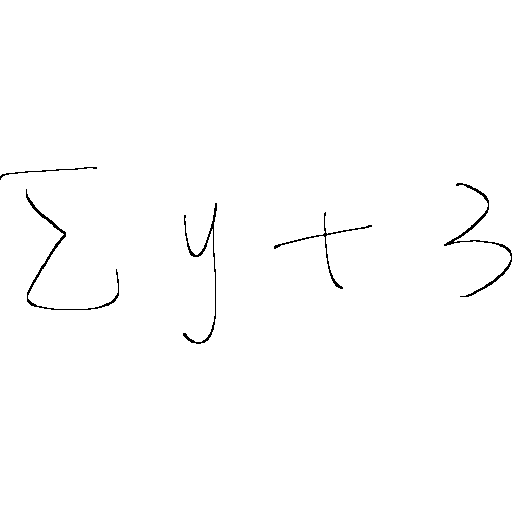 ∑ y + 3